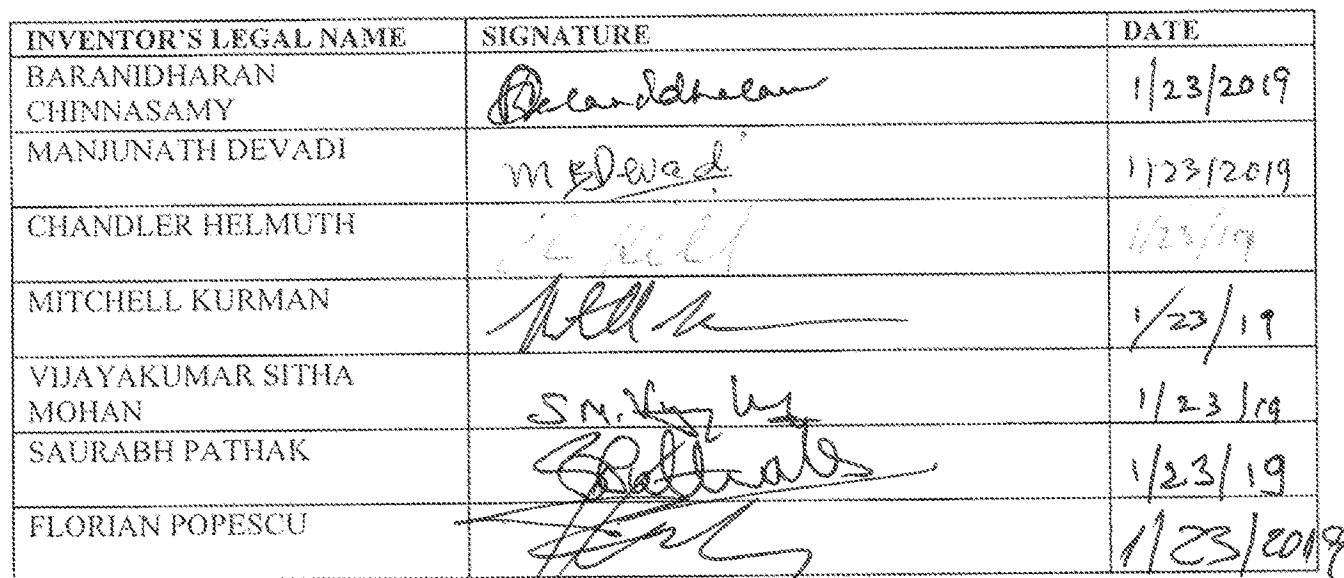 INVENTOR'S LEGAL NAME SIGNATURE DATE
BARANIDHARAN
CHINNASAMY 1/23/2019
MANJUNATH DEVADI Devadi 1/23/2019
CHANDLER HELMUTH 1/23/19
MITCHELL KURMAN 1/23/19
VIJAYAKUMAR SITHA
MOHAN S M. 1/23/19
SAURABH PATHAK SPathak 1/23/19
FLORIAN POPESCU 1/23/2019